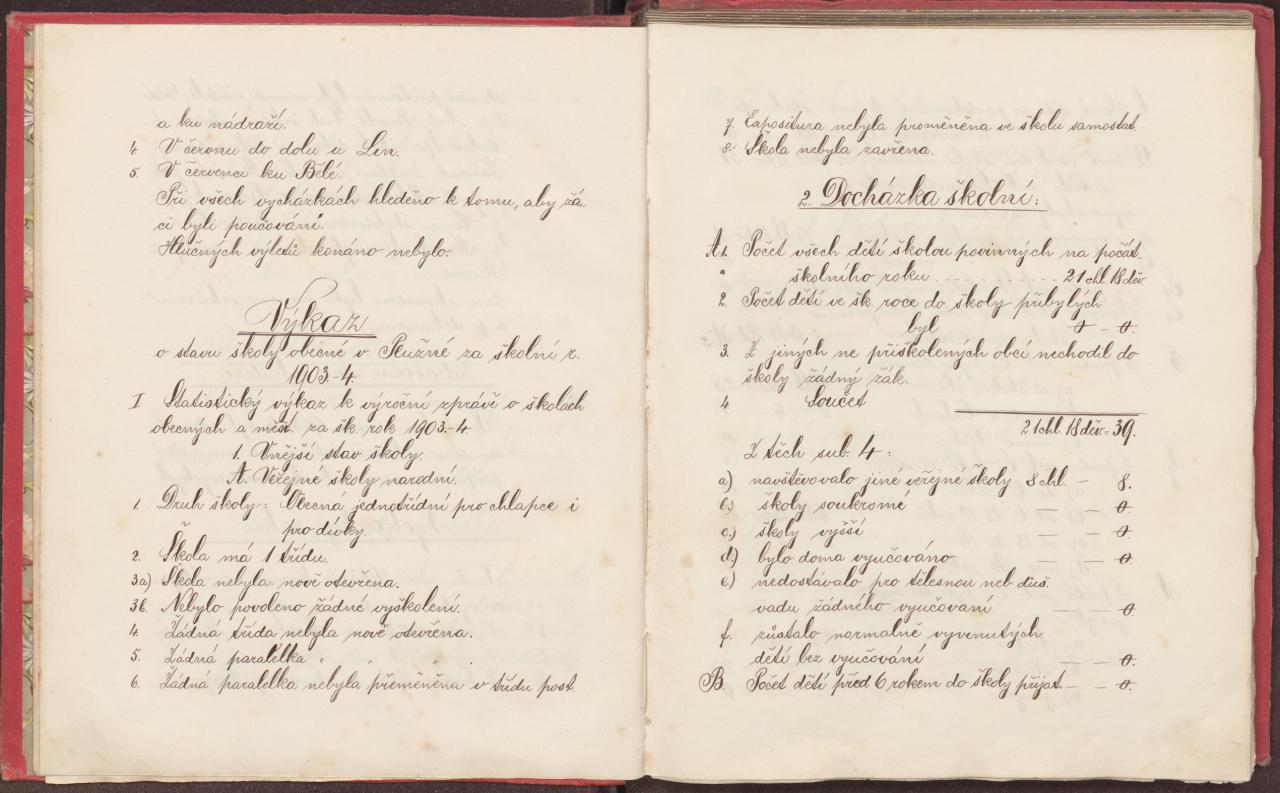 a ku nádraží.
4. V červnu do dolu u Lin.
5. V červenci ku Bělé.
Při všech vycházkách hleděno k tomu, aby žá-
ci byli poučováni.
Hlučných výletů konáno nebylo.
Výkaz
o stavu školy obecné v Plužné za školní r.
1903-4.
I Statistický výkaz k výroční zprávě o školách
obecných a měst. za šk. rok 1903-4
1. Vnější stav školy.
A. Veřejné školy narodní.
1. Druh školy: Obecná jednotřídní pro chlapce i
pro dívky.
2. Škola má 1 třídu.
3a) Škola nebyla nově otevřena.
3b. Nebylo povoleno žádné vyškolení.
4. Žádná třída nebyla nově otevřena.
5. Žádná paralelka " " "
6. Žádná paralelka nebyla přeměněna v třídu post.
7. Expositura nebyla proměněna ve školu samostat.
8. Škola nebyla zavřena.
2. Docházka školní:
A1. Počet všech dětí školou povinných na počát.
školního roku . . . . . . . 21 chl. 18 děv
2. Počet dětí ve šk. roce do školy přibylých
byl 0 - 0.
3. Z jiných ne přiškolených obcí nechodil do
školy žádný žák.
4 Součet
21 chl. 18 děv = 39.
Z těch sub. 4:
a) navštěvovalo jiné veřejné školy 8 chl. - 8.
b.) školy soukromé — — 0.
c.) školy vyšší — — 0.
d.) bylo doma vyučováno — — 0.
e) nedostávalo pro tělesnou neb duš.
vadu žádného vyučovaní — — 0.
f. zůstalo normalně vyvinutých
dětí bez vyučování — — 0.
B. Počet dětí před 6 rokem do školy přijat. — — 0.